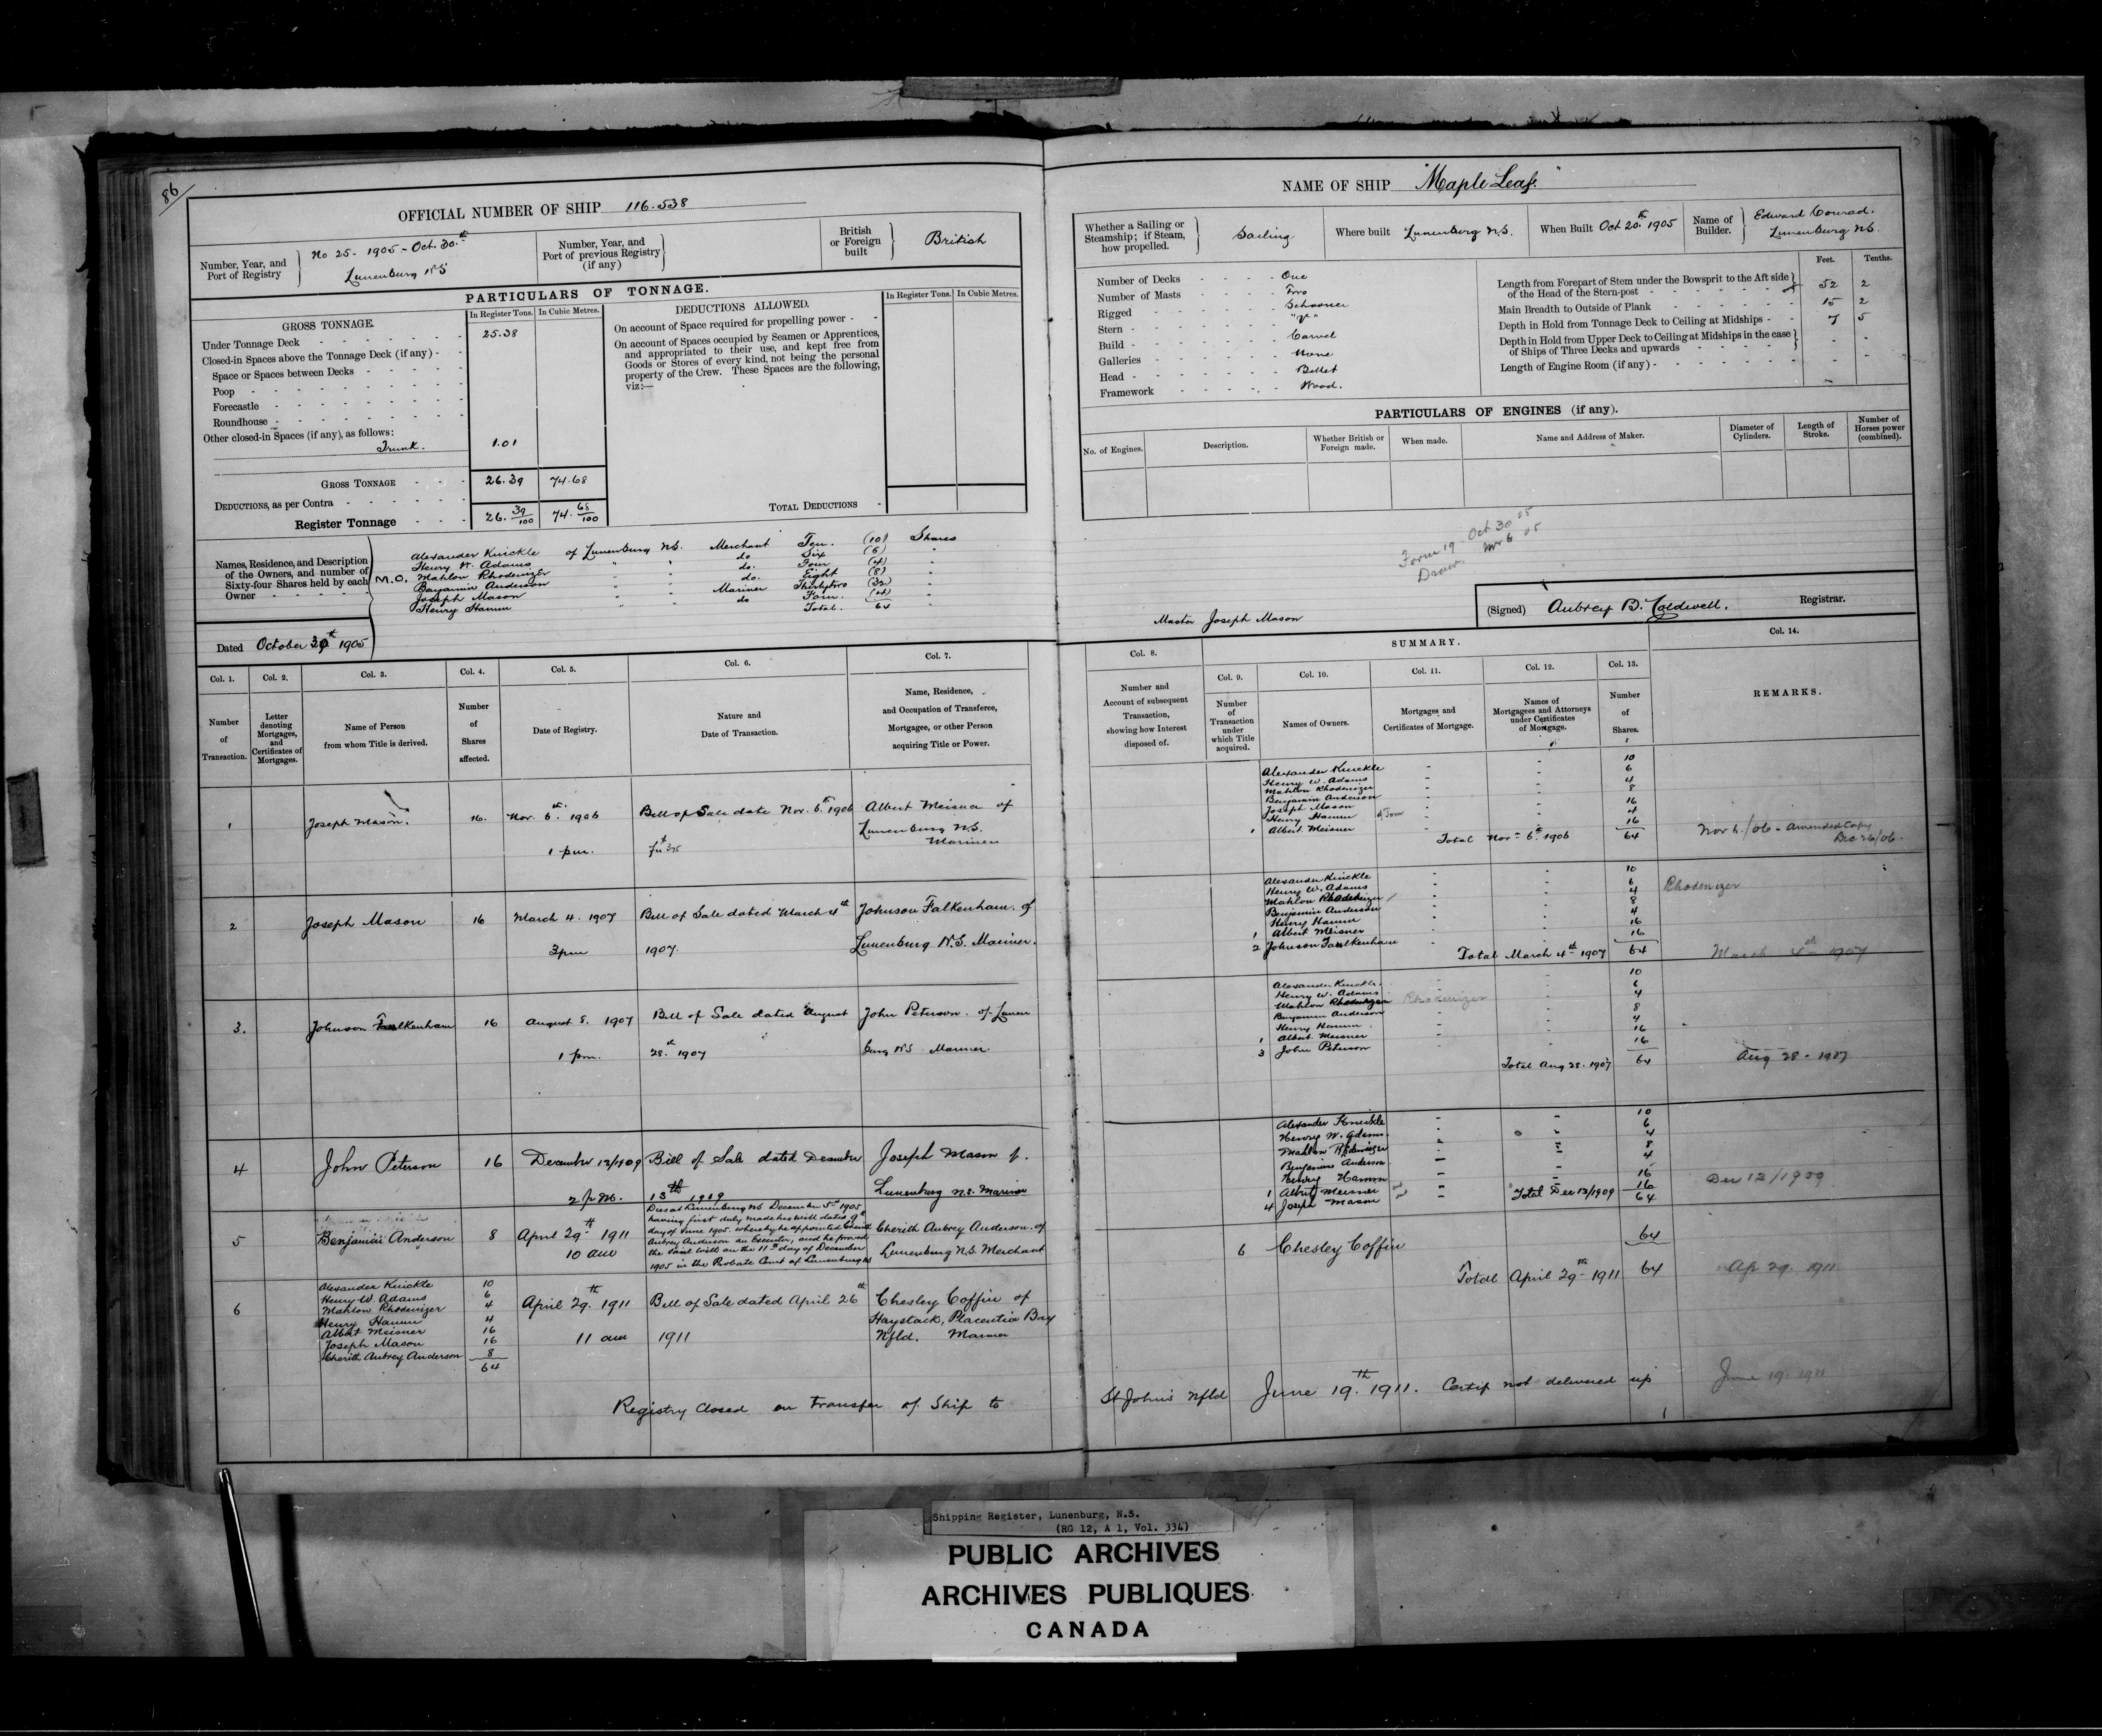 86
OFFICIAL NUMBER OF SHIP 116.538
Number, Year, and Port of Registry
No 25 - 1905 - Oct. 30th
Lunenburg NS
Number, Year, and Port of previous Registry (if any)
British or Foreign built
British
PARTICULARS OF TONNAGE.
GROSS TONNAGE.
In Register Tons. In Cubic Metres.
Under Tonnage Deck 25.38
Closed-in Spaces above the Tonnage Deck (if any) -
Space or Spaces between Decks
Poop
Forecastle
Roundhouse
Other closed-in Spaces (if any), as follows:
Trunk. 1.01
GROSS TONNAGE 26.39 74.68
DEDUCTIONS, as per Contra
Register Tonnage 26. 39/100 74. 68/100
DEDUCTIONS ALLOWED.
In Register Tons. In Cubic Metres.
On account of Space required for propelling power -
On account of Spaces occupied by Seamen or Apprentices,
and appropriated to their use, and kept free from
Goods or Stores of every kind, not being the personal
property of the Crew. These Spaces are the following,
viz:—
TOTAL DEDUCTIONS
Names, Residence, and Description
of the Owners, and number of
Sixty-four Shares held by each
Owner
Alexander Knickle of Lunenburg N.S. Merchant Ten. (10) Shares
Henry W. Adams " " do Six (6) "
M.O. Mahlon Rhodenizer " " do. Four (4) "
Benjamin Anderson " " do. Eight (8) "
Joseph Mason " " Mariner Thirtytwo (32) "
Henry Hamm " " do Four. (4) "
Total. 64 "
Dated October 30th 1905
NAME OF SHIP "Maple Leaf."
Whether a Sailing or Steamship; if Steam, how propelled.
Sailing
Where built Lunenburg N.S.
When Built Oct 20th 1905
Name of Builder.
Edward Conrad.
Lunenburg NS
Number of Decks One
Number of Masts Two
Rigged Schooner
Stern
Build Carvel
Galleries None
Head Billet
Framework Wood.
Feet. Tenths.
Length from Forepart of Stem under the Bowsprit to the Aft side
of the Head of the Stern-post 52 2
Main Breadth to Outside of Plank 15 2
Depth in Hold from Tonnage Deck to Ceiling at Midships 7 5
Depth in Hold from Upper Deck to Ceiling at Midships in the case
of Ships of Three Decks and upwards
Length of Engine Room (if any) -
PARTICULARS OF ENGINES (if any).
No. of Engines. Description. Whether British or Foreign made. When made. Name and Address of Maker. Diameter of Cylinders. Length of Stroke. Number of Horses power (combined).
Form 19 Oct 30 05
(Signed) Aubrey B. Caldwell. Registrar.
Master Joseph Mason
SUMMARY.
Col. 1. Number of Transaction.
Col. 2. Letter denoting Mortgages, and Certificates of Mortgages.
Col. 3. Name of Person from whom Title is derived.
Col. 4. Number of Shares affected.
Col. 5. Date of Registry.
Col. 6. Nature and Date of Transaction.
Col. 7. Name, Residence, and Occupation of Transferee, Mortgagee, or other Person acquiring Title or Power.
Col. 8. Number and Account of subsequent Transaction, showing how Interest disposed of.
Col. 9. Number of Transaction under which Title acquired.
Col. 10. Names of Owners.
Col. 11. Mortgages and Certificates of Mortgage.
Col. 12. Names of Mortgagees and Attorneys under Certificates of Mortgage.
Col. 13. Number of Shares.
Col. 14. REMARKS.
1 Joseph Mason. 16. Nov. 6th 1906
1 pm.
Bill of Sale date Nov. 6th 1906
Albert Meisner of
Lunenburg N.S.
Mariner
Alexander Knickle 10
Henry W. Adams 6
Mahlon Rhodenizer 4
Benjamin Anderson 8
Joseph Mason 16
Henry Hamm 4
1 Albert Meisner 16
Total Nov 6th 1906 64
Nov 6./06 - Amended Copy
Dec 26/06.
2 Joseph Mason 16 March 4. 1907
3pm
Bill of Sale dated March 4th
1907.
Johnson Falkenham. of
Lunenburg N.S. Mariner.
Alexander Knickle 10
Henry W. Adams 6
Mahlon Rhodenizer 4
Benjamin Anderson 8
Henry Hamm 4
1 Albert Meisner 16
2 Johnson Faulkenham 16
Total March 4th 1907 64
Rhodenizer
March 4th 1907
3. Johnson Falkenham 16 August 8. 1907
1 pm.
Bill of Sale dated August
28.th 1907
John Peterson. of Lunen
burg NS. Mariner.
Alexander Knickle. 10
Henry W. Adams 6
Mahlon Rhodenizer 4
Rhodenizer
Benjamin Anderson 8
Henry Hamm 4
1 Albert Meisner 16
3 John Peterson 16
Total Aug 28. 1907 64
Aug 28 - 1907
4 John Peterson 16 December 13/1909
2 p.m.
Bill of Sale dated December
13th 1909
Joseph Mason of
Lunenburg N.S. Mariner
Alexander Knickle 10
Henry W. Adams 6
Mahlon Rhodenizer 4
Benjamin Anderson 8
Henry Hamm 4
1 Albert Meisner 16
4 Joseph Mason 16
Total Dec 13/1909 64
Dec 13/1909
5 Benjamin Anderson 8 April 29th 1911
10 am
Died at Lunenburg NS December 5th 1905
having first duly made his will dated 9th
day of June 1905. whereby he appointed Cherith
Aubrey Anderson an Executor, and he proved
the said will on the 11th day of December
1905 in the Probate Court of Lunenburg NS
Cherith Aubrey Anderson. of
Lunenburg N.S. Merchant
6 Chesley Coffin 64
Total April 29th 1911 64
Ap 29. 1911
6
Alexander Knickle 10
Henry W. Adams 6
Mahlon Rhodenizer 4
Henry Hamm 4
Albert Meisner 16
Joseph Mason 16
Cherith Aubrey Anderson 8
64
April 29th 1911
11 am
Bill of Sale dated April 26th
1911
Chesley Coffin of
Haystack, Placentia Bay
Nfld. Mariner
Registry Closed on transfer of Ship to St Johns Nfld June 19th 1911. Certif not delivered up
June 19. 1911
Shipping Register, Lunenburg, N.S.
(RG 12, A 1, Vol. 334)
PUBLIC ARCHIVES
ARCHIVES PUBLIQUES
CANADA